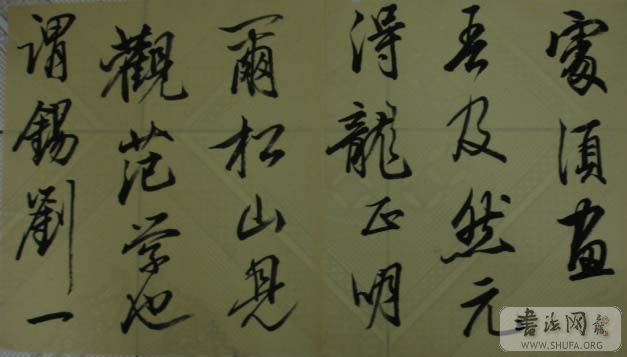 處須畫
吾及然元
得龍正明
爾松山見
觀范学也
謂錫劉一
書法网
WWW.SHUFA.ORG